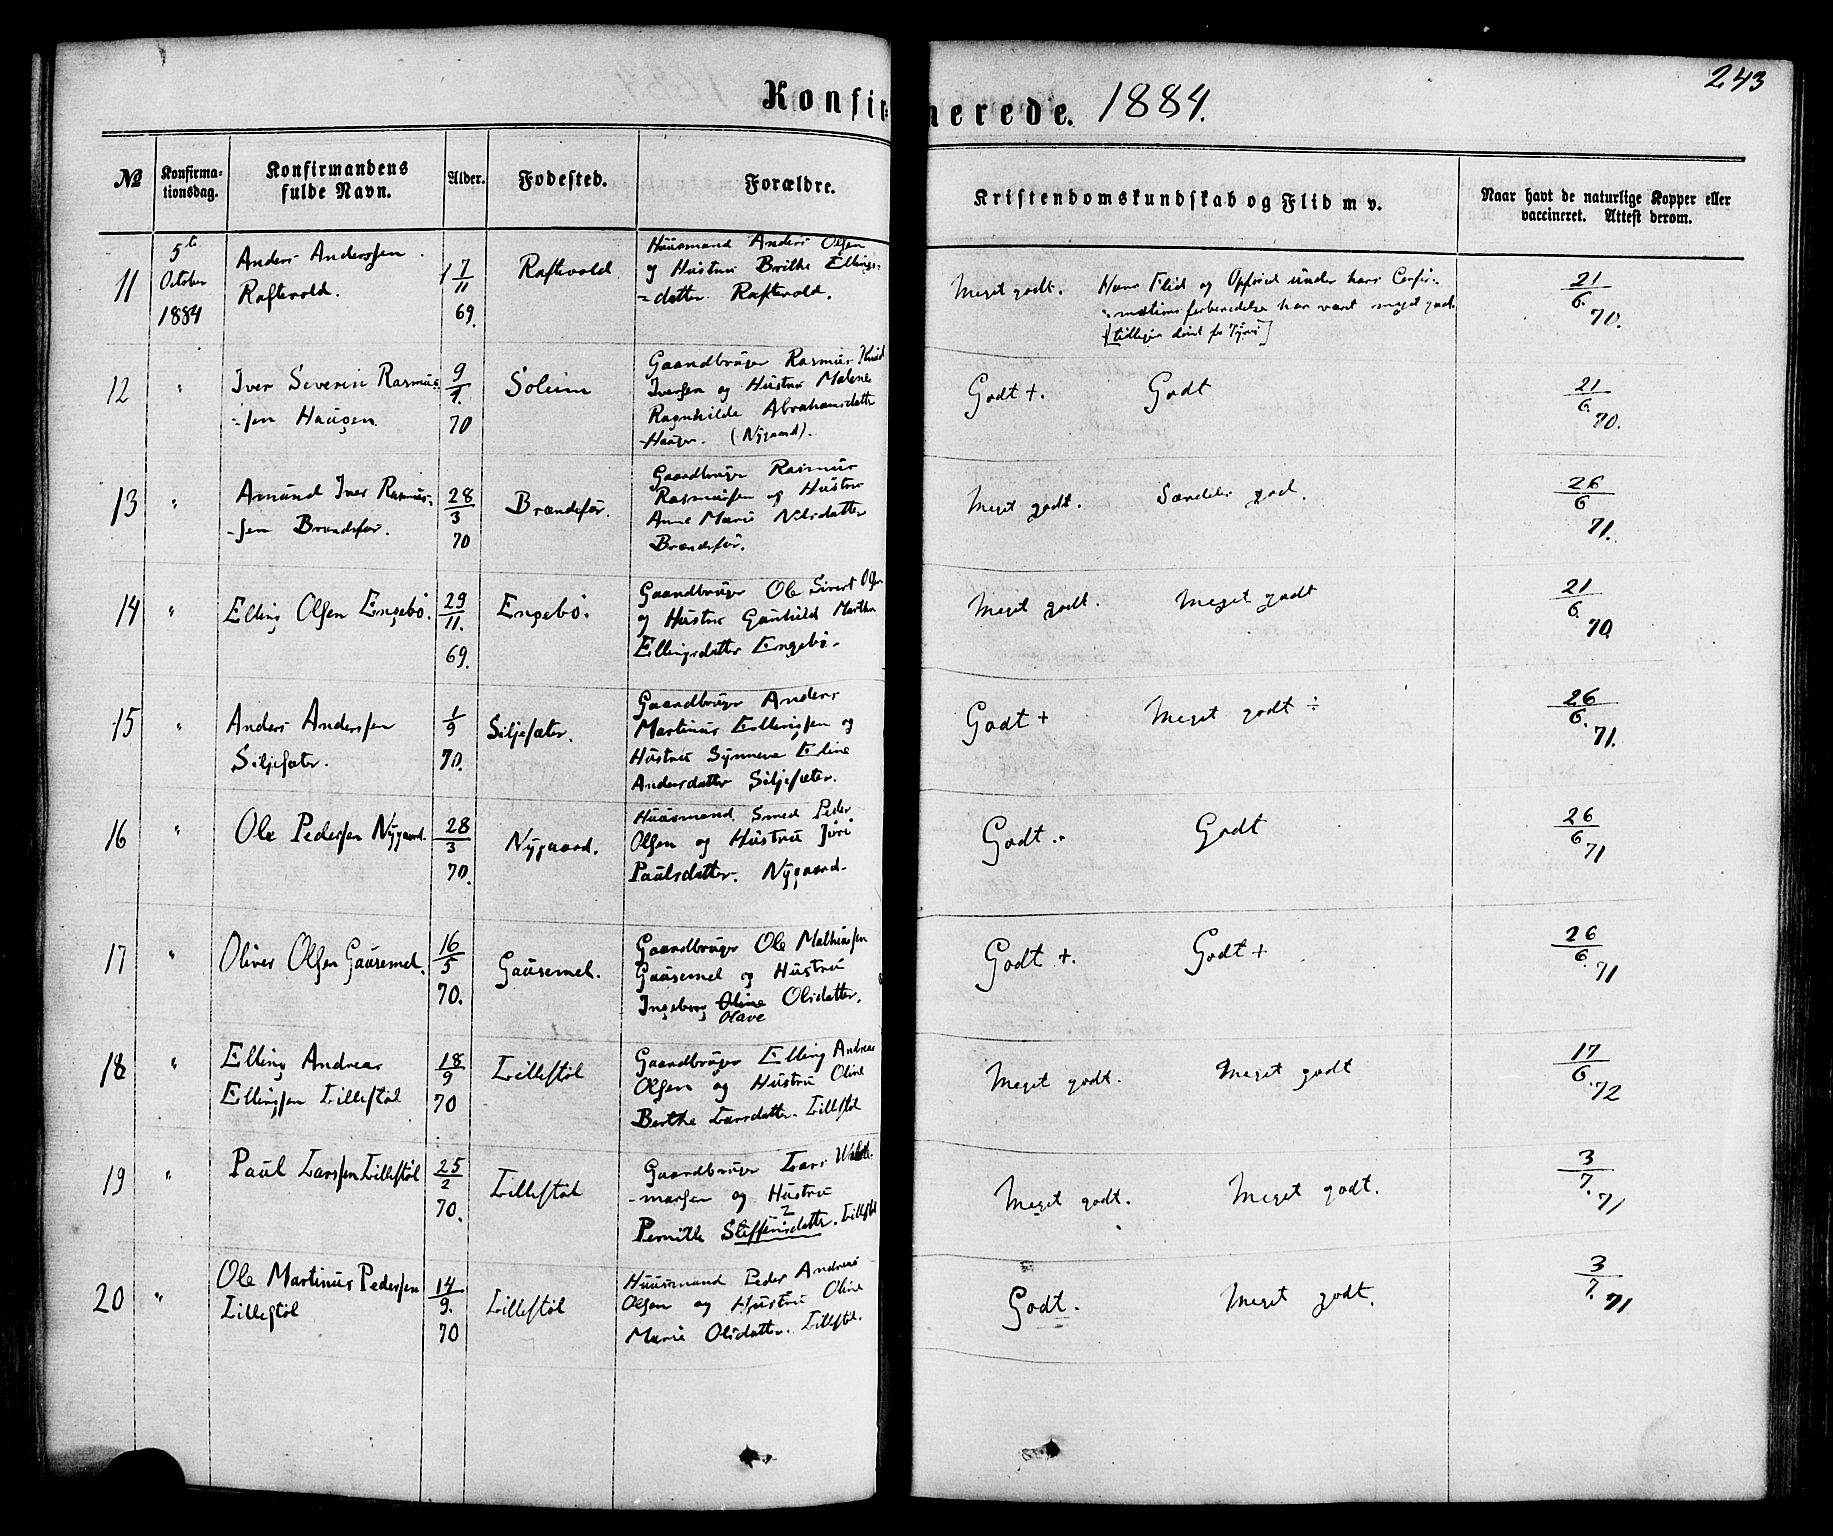 243
Konfirmerede. 1884.
№ Konfirma-tionsdag. Konfirmandens fulde Navn. Alder. Fodested. Forældre. Kristendomskundskab og Flid m v. Naar havt de naturlige Kopper eller vaccineret. Attest derom.
11 5te October 1884
Anders Anderssen
Raftevold.
7/11 69.
Raftevold
Huusmand Anders Olsen
og Hustru Brithe Ellings-
=datter Raftevold.
Meget godt. Hans Flid og Opførsel under hans Confir-
mationsforberedelse har været meget god.
21/6 70.
12 "
Iver Severin Rasmus-
-sen Haugen
9/9. 70
Soleim
Gaardbruger Rasmus Knud
Iversen og Hustru Malene
Ragnhilde Abrahamsdatter
Haugen. (Nygaard).
Godt +. Godt
21/6. 70.
13 "
Amund Iver Rasmus-
-sen Brændsfør.
28/3 70
Brændefør.
Gaardbruger Rasmus
Rasmussen og Hustru
Anne Marie Nilsdatter
Brændefør.
Meget godt. Særdeles god.
26/6 71.
14 "
Elling Olsen Engebö.
29/11. 69.
Engebö.
Gaardbruger Ole Sivert Olsen
og Hustru Gunhild Marthe
Ellingsdatter Engebö.
Meget godt. Meget godt
21/6. 70
15 "
Anders Anderssen
Siljesæter.
1/9 70.
Siljesæter.
Gaardbruger Anders
Martinus Ellingssen og
Hustru Synneve Eline
Andersdatter Siljesæter.
Godt + Meget godt ÷
26/6. 71.
16 "
Ole Pedersen Nygaard.
28/3 70.
Nygaard.
Huusmand Smed Peder
Olsen og Hustru Jüri
Paulsdatter. Nygaard.
Godt. Godt
26/6. 71
17 "
Oliver Olsen Gausemel.
16/5 70.
Gausemel.
Gaardbruger Ole Mathiassen
Gausemel og Hustru
Ingeborg Oline Olsdatter.
Olave
Godt +. Godt +
26/6. 71
18 "
Elling Andreas
Ellingsen Lillestöl
18/9 70
Lillestöl
Gaardbruger Elling Andreas
Olsen og Hustru Oline
Berthe Larsdatter. Lillestöl
Meget godt. Meget godt
17/6. 72
19 "
Paul Larssen Lillestöl
25/2 70.
Lillestöl
Gaardbruger Lars
-marsen og Hustru
Pernille Steffensdatter. Lillestöl
Meget godt. Meget godt.
3/7. 71
20 "
Ole Martinus Pedersen
Lillestöl
14/9. 70
Lillestöl
Huusmand Peder Andreas
Olsen og Hustru Oline
Marie Olsdatter. Lillestöl.
Godt. Meget godt.
3/7. 71